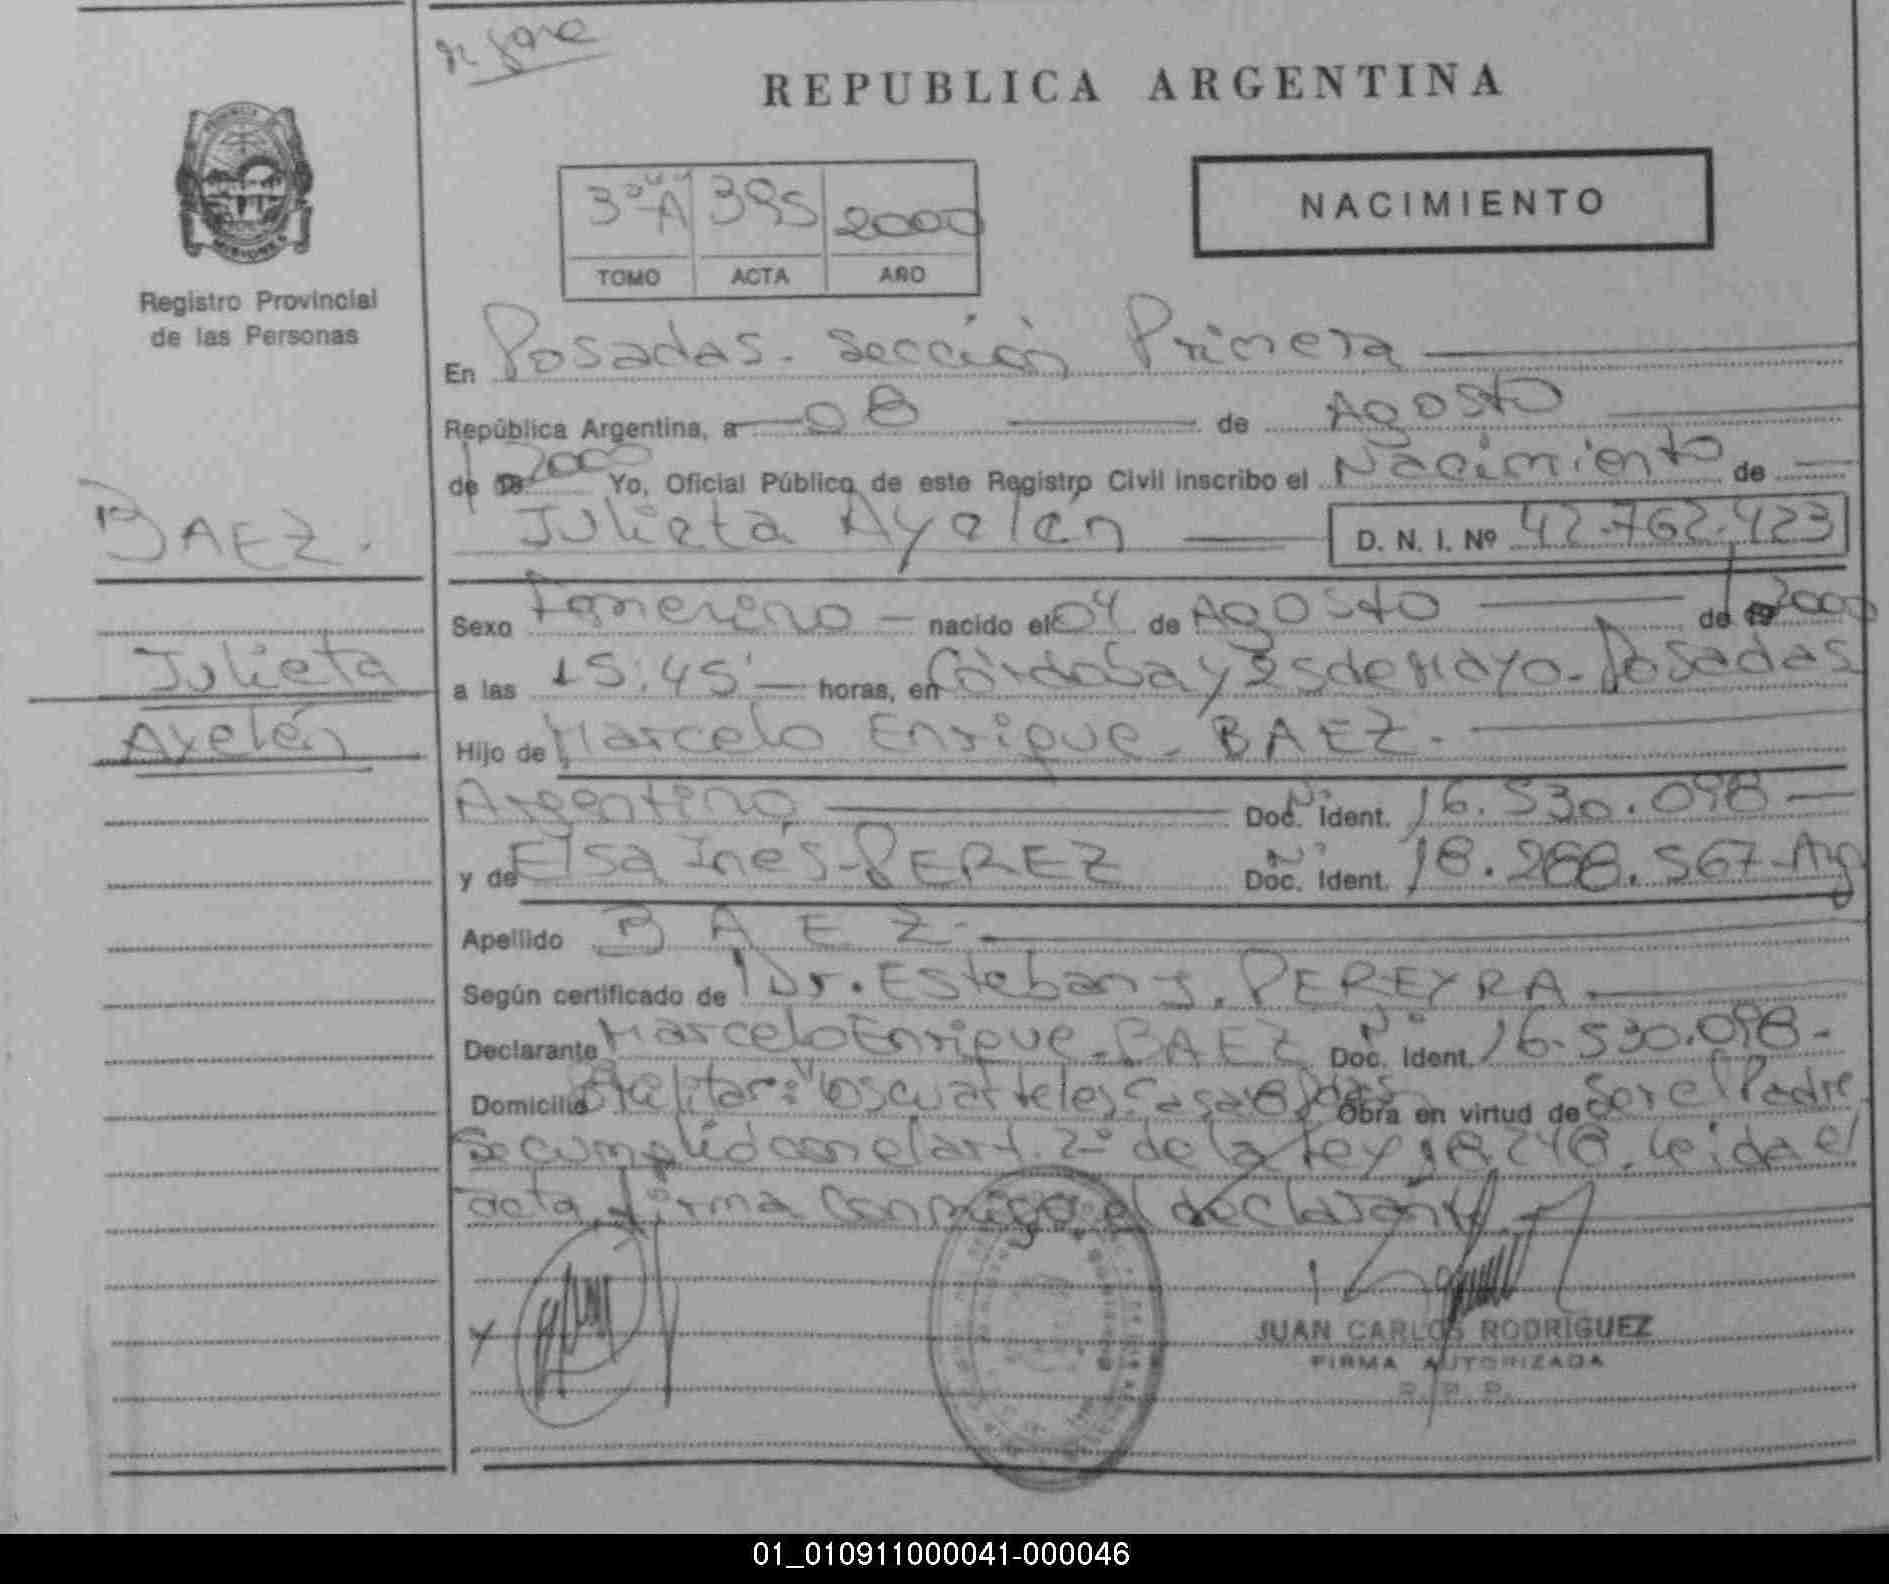 REPUBLICA ARGENTINA
NACIMIENTO
3º "A" 395 2000
TOMO ACTA AÑO
Registro Provincial
de las Personas
En Posadas - Sección Primera
República Argentina, a 08 de Agosto
de 2000 Yo, Oficial Público de este Registro Civil inscribo el Nacimiento de
BAEZ.
Julieta Ayelén D. N. I. Nº 42.762.423
Sexo Femenino - nacido el 04 de Agosto de 2000
Julieta
a las 15:45' horas, en Córdoba y 25 de Mayo - Posadas
Ayelén
Hijo de Marcelo Enrique - BAEZ.
Argentino Nº Doc. Ident. 16.530.098
y de Elsa Inés - PEREZ Nº Doc. Ident. 18.288.567 - Arg
Apellido BAEZ.
Según certificado de Dr. Esteban J. PEREYRA.
Declarante Marcelo Enrique - BAEZ Nº Doc. Ident. 16.530.098.
Domicilio los cuarteles Obra en virtud de Ser el Padre
Se cumplió con el art. 2º de la Ley 18.248. Leída el
acta, firma conmigo el declarante
JUAN CARLOS RODRIGUEZ
FIRMA AUTORIZADA
01_010911000041-000046